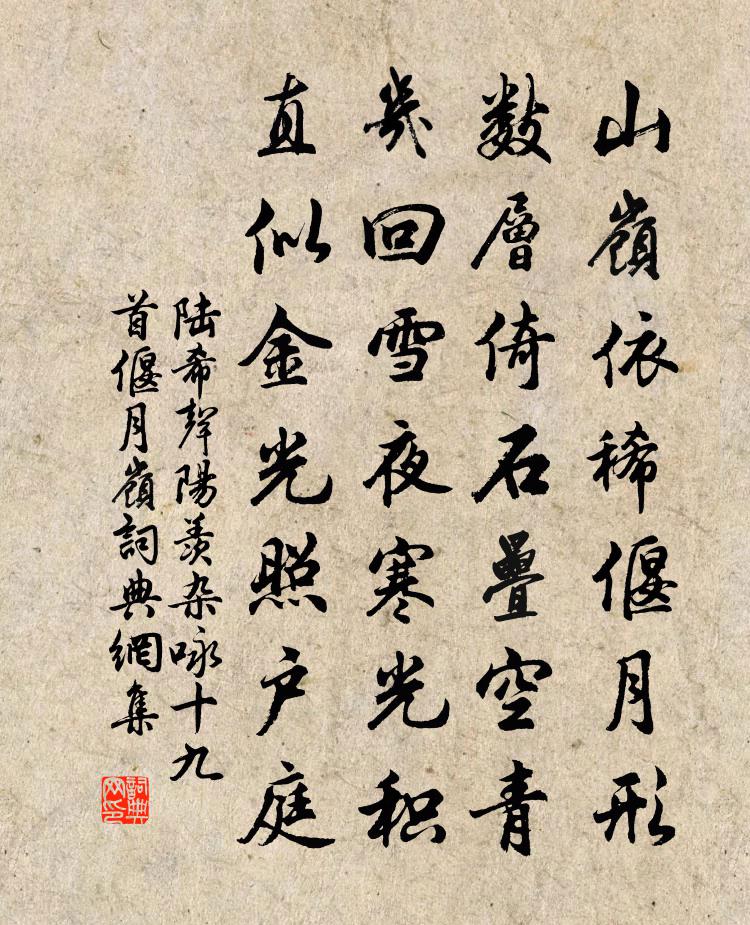 山嶺依稀偃月形
數層倚石疊空青
幾回雪夜寒光积
直似金光照户庭
陆希聲陽羨杂咏十九
首偃月嶺詞典網集
詞典
网印